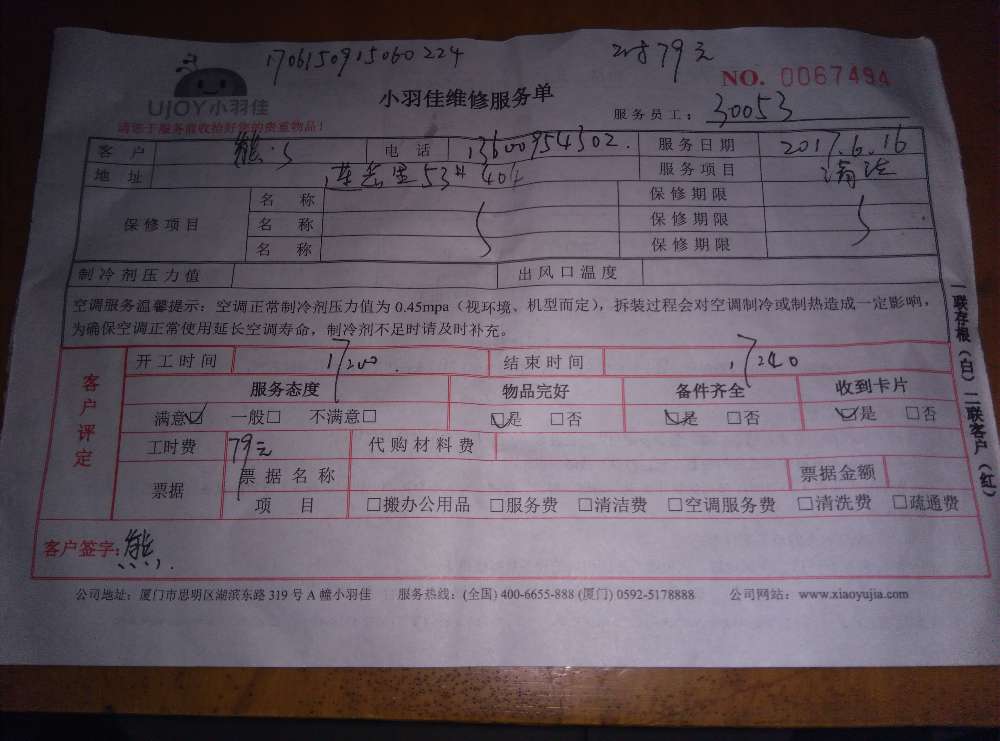 1706150915060224 79元
NO. 0067494
UJOY小羽佳
小羽佳维修服务单
服务员工： 30053
请您于服务前收拾好您的贵重物品！
客户 熊 电话 13600954302. 服务日期 2017.6.16
地址 53# 服务项目 清洗
保修项目 名称 保修期限
名称 保修期限
名称 保修期限
制冷剂压力值 出风口温度
空调服务温馨提示：空调正常制冷剂压力值为 0.45mpa（视环境、机型而定），拆装过程会对空调制冷或制热造成一定影响，
为确保空调正常使用延长空调寿命，制冷剂不足时请及时补充。
客户评定 开工时间 17200 结束时间 17240
服务态度 物品完好 备件齐全 收到卡片
满意☑ 一般□ 不满意□ ☑是 □否 ☑是 □否 ☑是 □否
工时费 79元 代购材料费
票据 票据名称 票据金额
项目 □搬办公用品 □服务费 □清洁费 □空调服务费 □清洗费 □疏通费
客户签字：熊.
一联存根（白）二联客户（红）
公司地址：厦门市思明区湖滨东路 319 号 A 幢小羽佳 服务热线：(全国) 400-6655-888 (厦门) 0592-5178888 公司网站：www.xiaoyujia.com